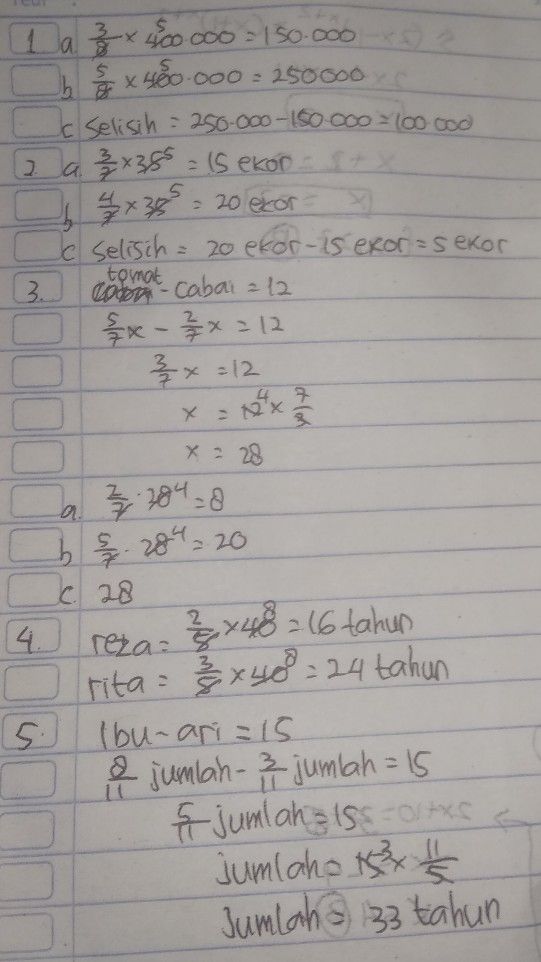 1 a 3/8 × 400.000 = 150.000
b 5/8 × 400.000 = 250000
c selisih = 250.000 - 150.000 = 100.000
2. a. 3/7 × 35 5 = 15 ekor
b 4/7 × 35 5 = 20 ekor
c selisih = 20 ekor - 15 ekor = 5 ekor
3. tomat - cabai = 12
5/7 x - 2/7 x = 12
3/7 x = 12
x = 12 4 × 7/3
x = 28
a. 2/7 . 28 4 = 8
b 5/7 . 28 4 = 20
c. 28
4. reza = 2/5 × 40 8 = 16 tahun
rita = 3/5 × 40 8 = 24 tahun
5. Ibu - ari = 15
8/11 jumlah - 3/11 jumlah = 15
5/11 jumlah = 15
jumlah = 15 3 × 11/5
Jumlah = 33 tahun